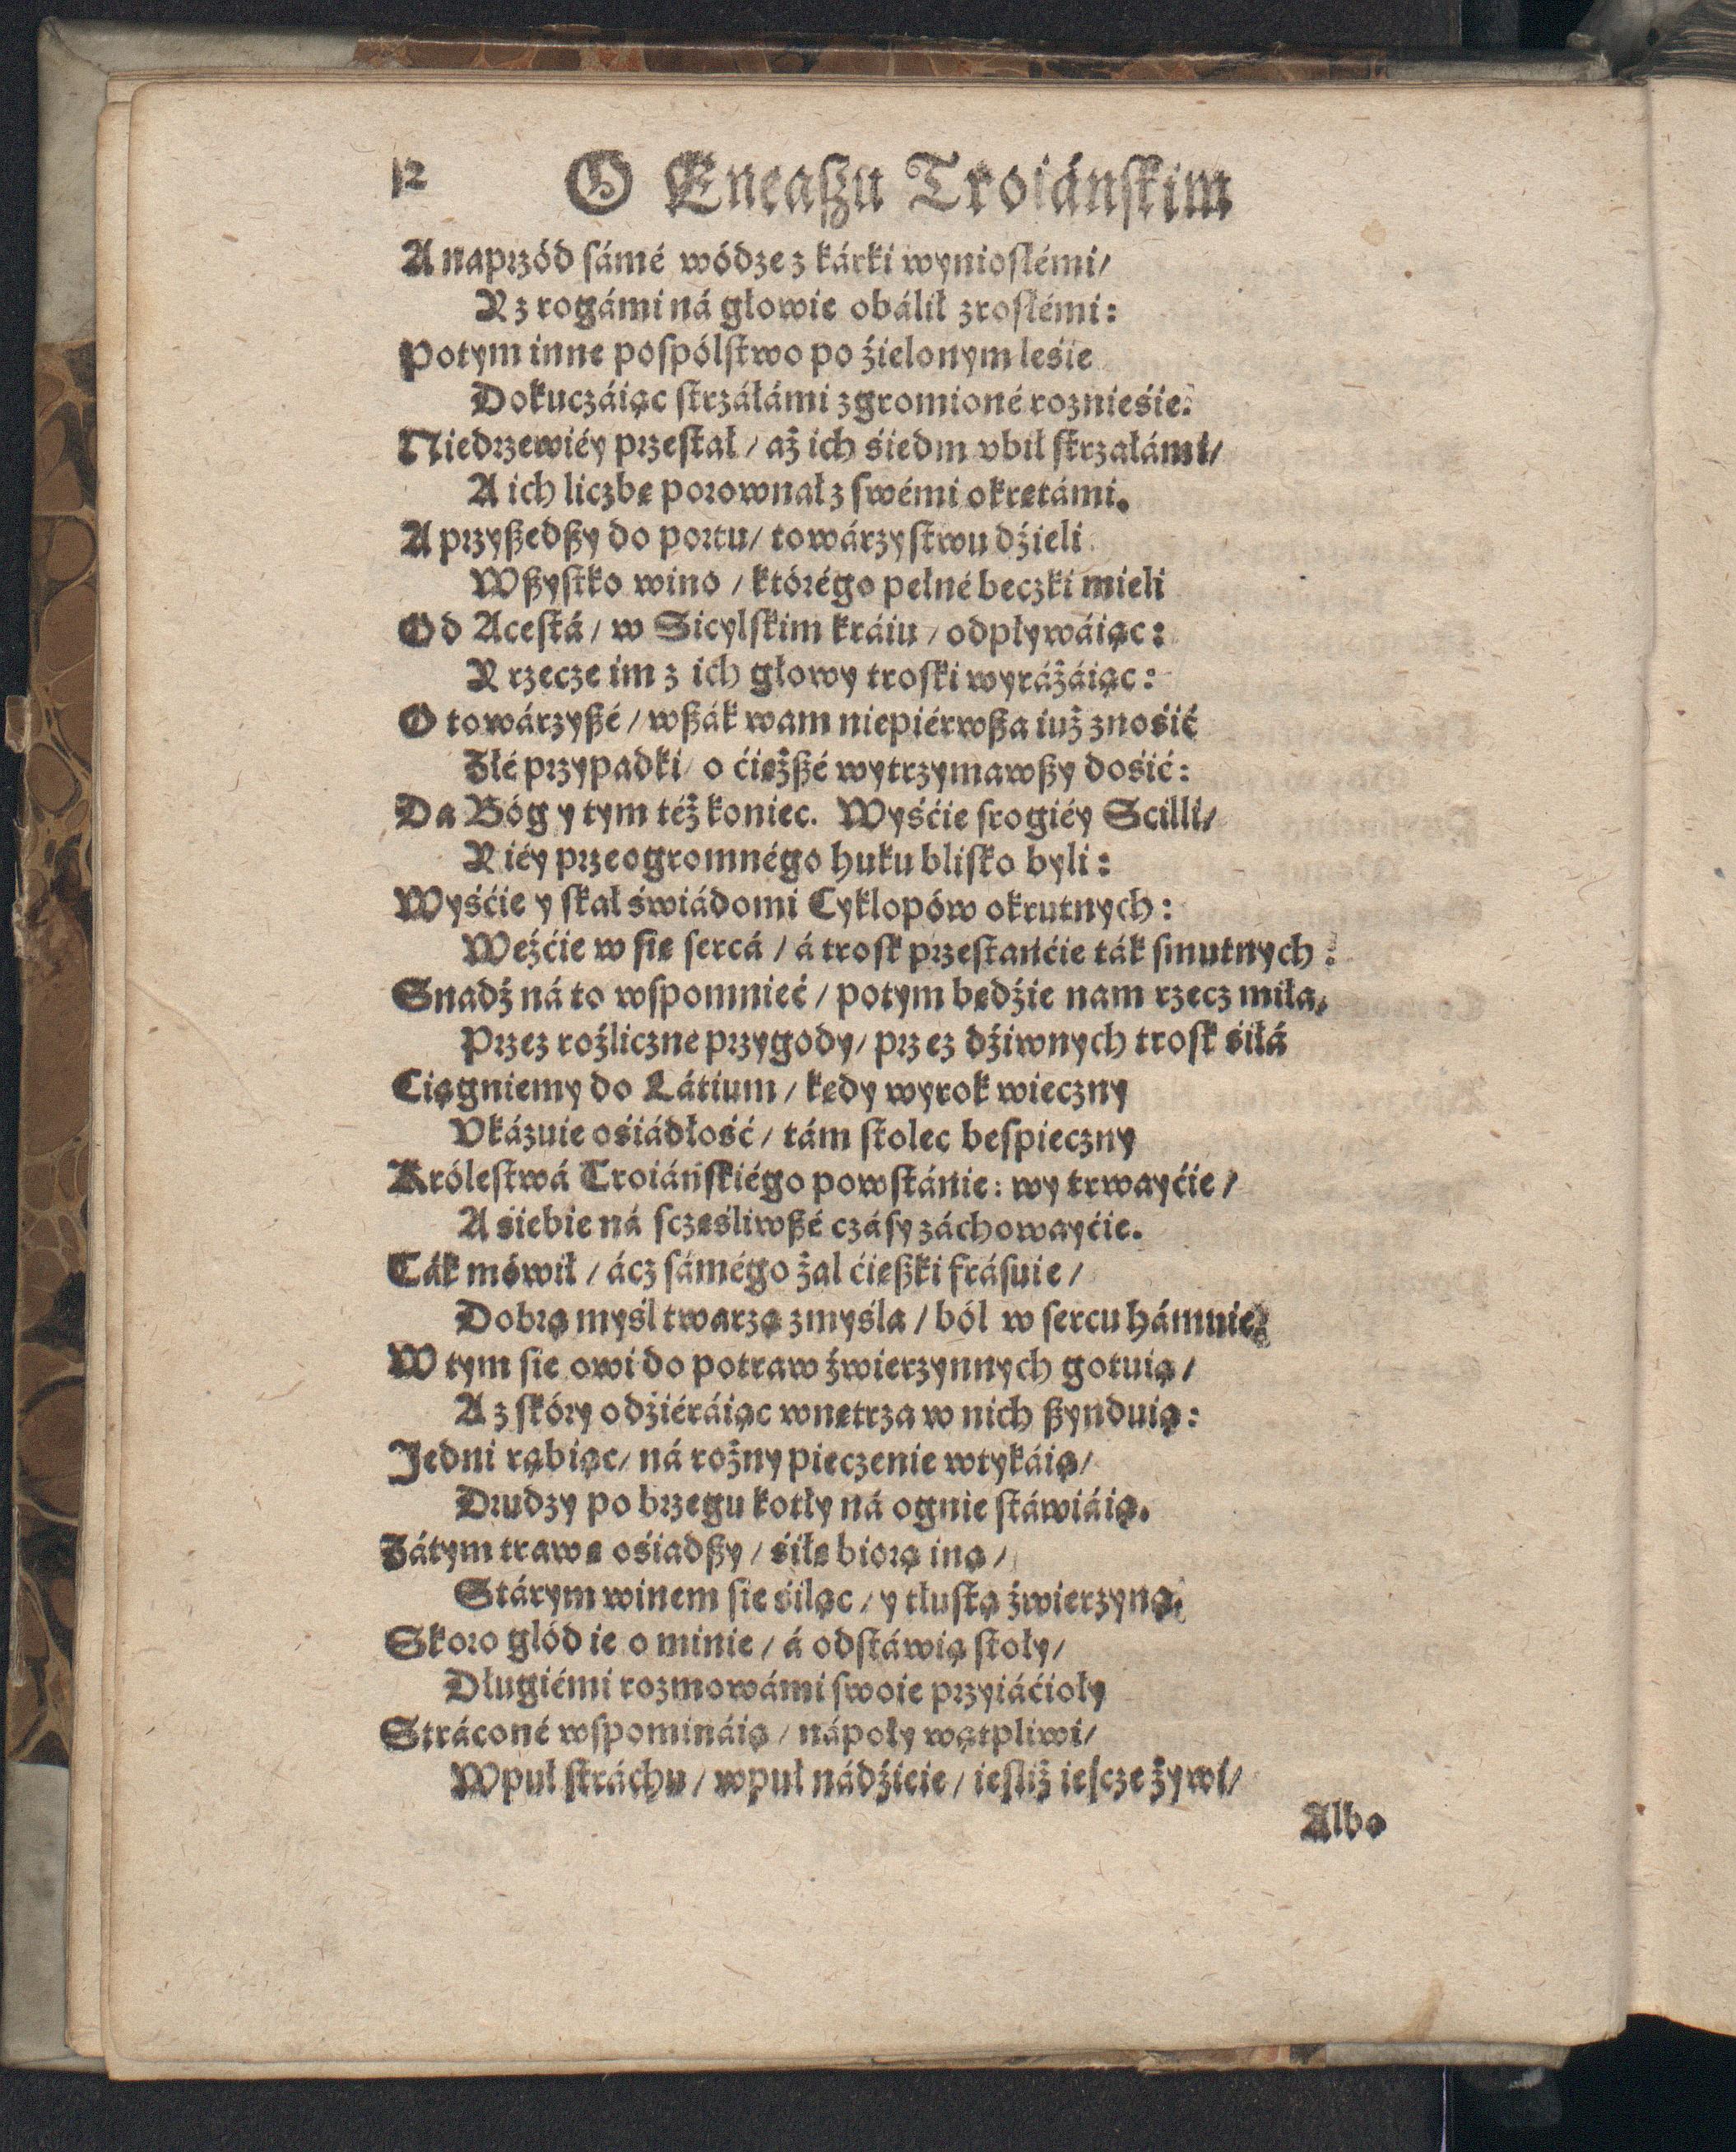 12 O Eneaſzu Troiánſkim
A naprzód ſámé wódze z kárki wynioſłémi/
Y z rogámi ná głowie obálił zroſłémi:
Potym inne poſpólſtwo po źielonym leśie
Dokuczáiąc ſtrzáłámi zgromioné roznieśie.
Niedrzewiéy przeſtał / aż ich śiedm vbił ſtrzałámi/
A ich liczbę porownał z ſwémi okrętámi.
A przyßedßy do portu/ towárzyſtwu dźieli
Wßyſtko wino / którégo pełné beczki mieli
Od Aceſtá / w Sicylſkim kráiu / odpływáiąc:
Y rzecze im z ich głowy troſki wyráżáiąc:
O towárzyßé / wßák wam niepiérwßa iuż znośić
Złé przypadki/ o ćiężßé wytrzymawßy dośić:
Da Bóg y tym téż koniec. Wyśćie ſrogiéy Scilli/
Y iéy przeogromnégo huku bliſko byli:
Wyśćie y ſkał świádomi Cyklopów okrutnych:
Weźćie w ſię ſercá / á troſk przeſtańćie ták ſmutnych:
Snadź ná to wſpomnieć / potym będźie nam rzecz miła,
Przez roźliczne przygody/ przez dźiwnych troſk śiłá
Ciągniemy do Látium / kędy wyrok wieczny
Vkázuie ośiádłość / tám ſtolec beſpieczny
Króleſtwá Troiáńſkiégo powſtánie: wy trwayćie /
A śiebie ná ſczęśliwßé czáſy záchowayćie.
Ták mówił / ácz ſámégo żal ćießki fráſuie /
Dobrą myśl twarzą zmyśla / ból w ſercu hámuie.
W tym ſie owi do potraw źwierzynnych gotuią /
A z ſkóry odźiéráiąc wnętrza w nich ßynduią:
Jedni rąbiąc/ ná rożny pieczenie wtykáią/
Drudzy po brzegu kotły ná ognie ſtáwiáią.
Zátym trawę ośiadßy / śiłę biorą iną /
Stárym winem ſie śiląc / y tłuſtą źwierzyną.
Skoro głód ie o minie / á odſtáwią ſtoły/
Długiémi rozmowámi ſwoie przyiáćioły
Stráconé wſpomináią / nápoły wątpliwi/
Wpuł ſtráchu / wpuł nádźieie / ieſliż ieſcze żywi/
Albo